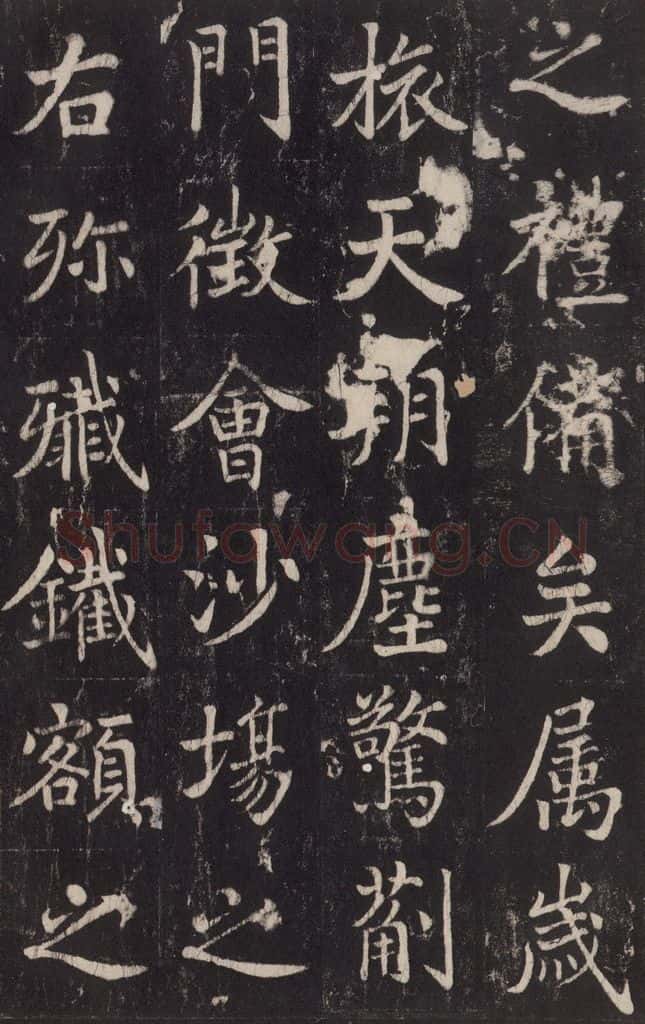 之禮備矣属歲
旅天朔塵驚薊
門徵會沙場之
右弥殲鐵額之
Shufawang.CN